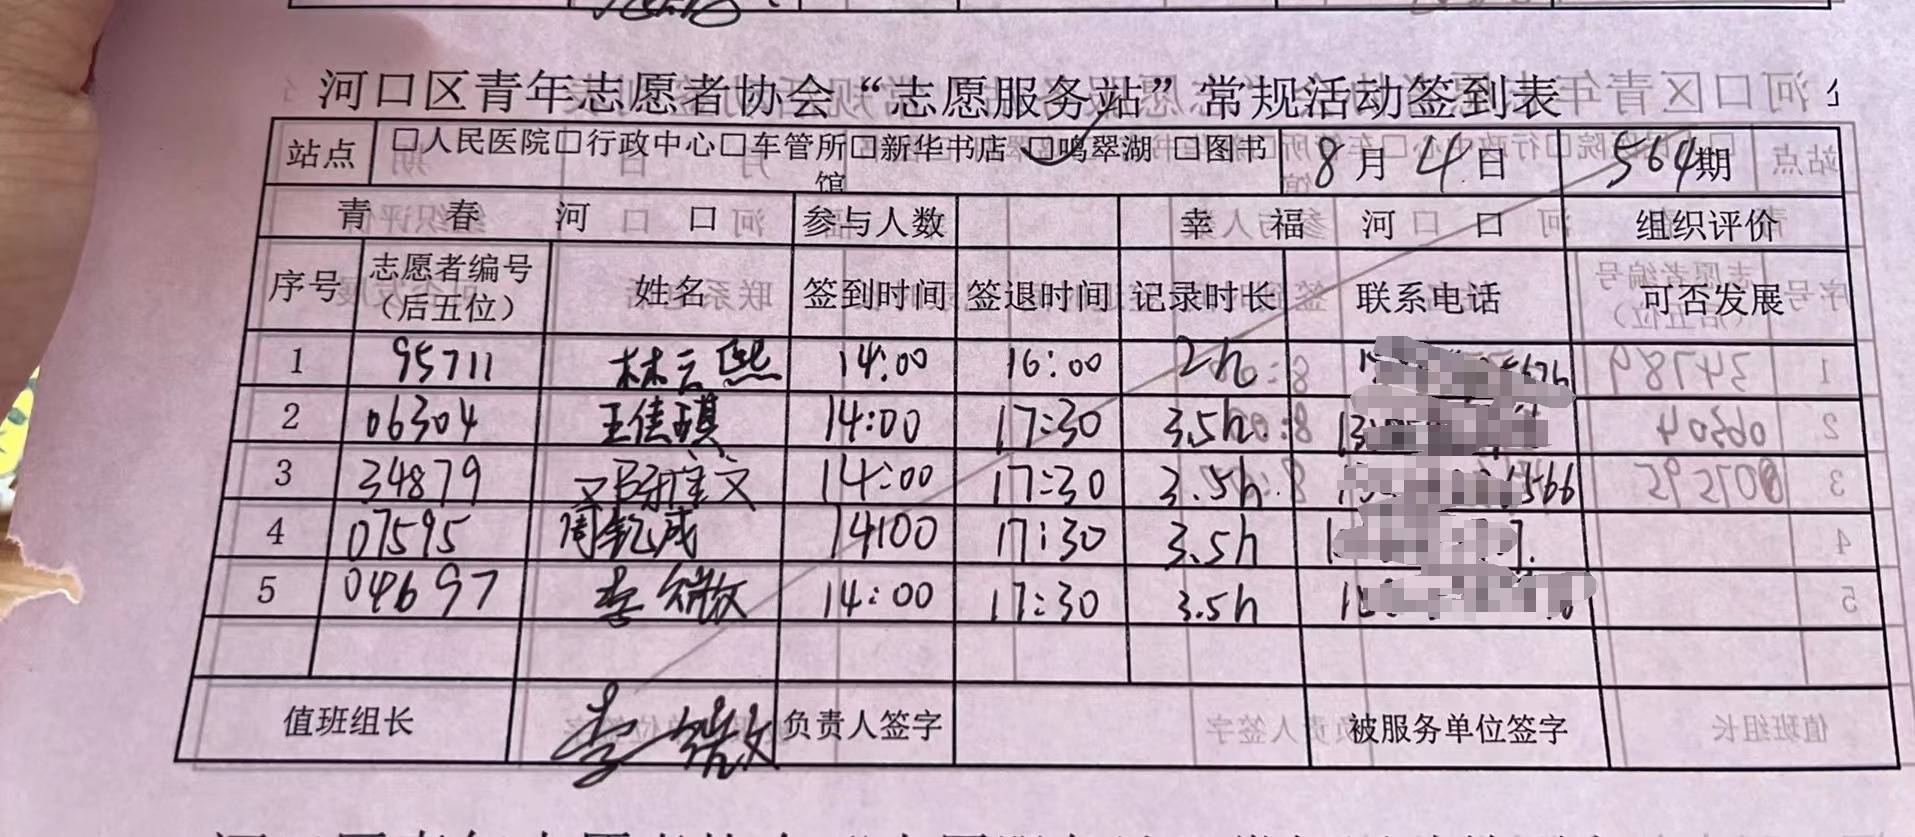 河口区青年志愿者协会“志愿服务站”常规活动签到表
站点 □人民医院□行政中心□车管所□新华书店 □鸣翠湖 □图书馆 8月4日 564期
青春河口 参与人数 幸福河口 组织评价
序号 志愿者编号（后五位） 姓名 签到时间 签退时间 记录时长 联系电话 可否发展
1 95711 林云熙 14:00 16:00 2h
2 06304 王佳琪 14:00 17:30 3.5h
3 34879 14:00 17:30 3.5h 566
4 07595 周 14:00 17:30 3.5h
5 04697 李 14:00 17:30 3.5h
值班组长 李 负责人签字 被服务单位签字